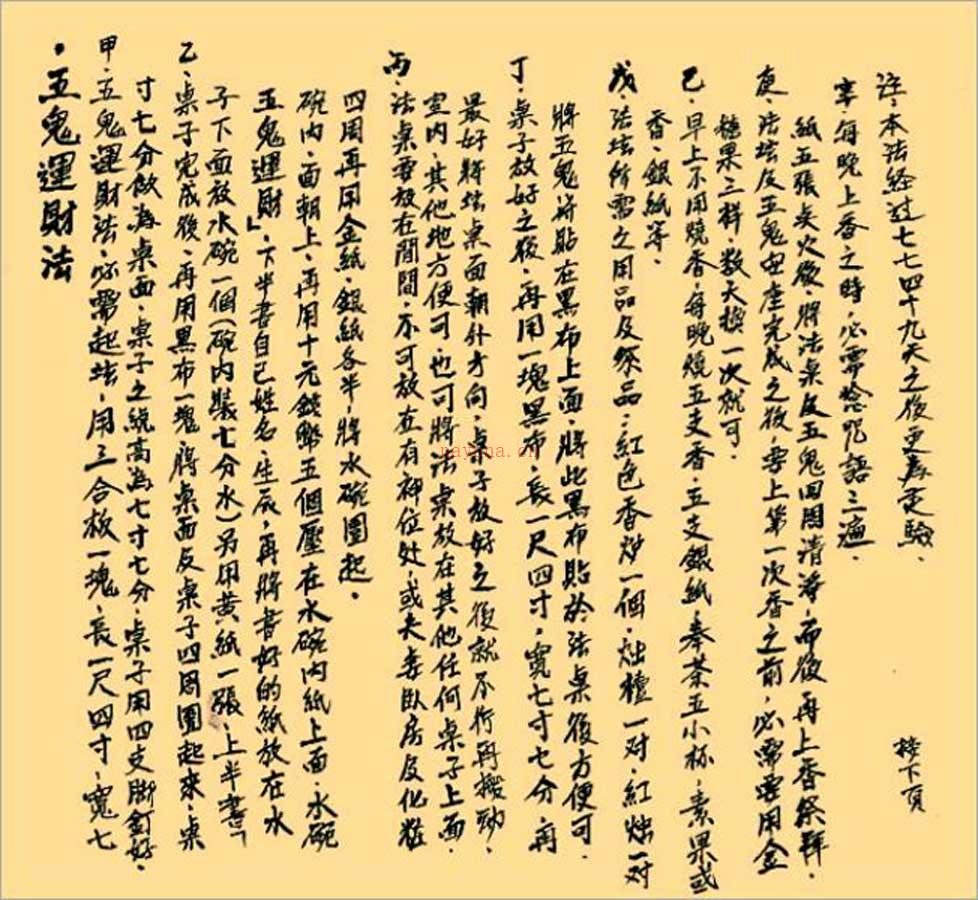 ・五鬼運財法
甲・五鬼運財法・必需起坛・用三合板一塊・長一尺四寸・寬七
寸七分做為桌面・桌子之總高為七寸七分・桌子用四支脚釘好・
乙・桌子完成後・再用黑布一塊・將桌面反桌子四周圍起來・桌
子下面放水碗一個(碗内裝七分水)另用黃紙一張・上半書「
五鬼運財」・下半書自己姓名・生辰・再將書好的紙放在水
碗内・面朝上・再用十元錢幣五個壓在水碗内紙上面・水碗
四周再用金紙・銀紙各半・將水碗圍起・
丙・法桌要放在閒間・不可放在有神位处・或夫妻臥房反化粧
室内・其他地方便可・也可將法桌放在其他任何桌子上面・
最好將坛桌面朝外方向・桌子放好之後就不行再搬動・
丁・桌子放好之後・再用一塊黑布・長一尺四寸・寬七寸七分・再
將五鬼符貼在黑布上面・將此黑布貼於法桌後方便可・
戊・法坛所需之用品及祭品:紅色香炉一個・烛檯一对・紅烛一对
香・銀紙等・
己・早上不用燒香・每晚燒五支香・五支銀紙・奉茶五小杯・素果或
糖果三样・数天換一次就可・
庚・法坛反五鬼安座完成之後・要上第一次香之前・必需要用金
紙五張点火後・將法桌反五鬼四周清淨・而後再上香祭拜・
辛・每晚上香之時・必需唸咒語三遍・
注・本法经过七七四十九天之後更為灵驗・
接下頁